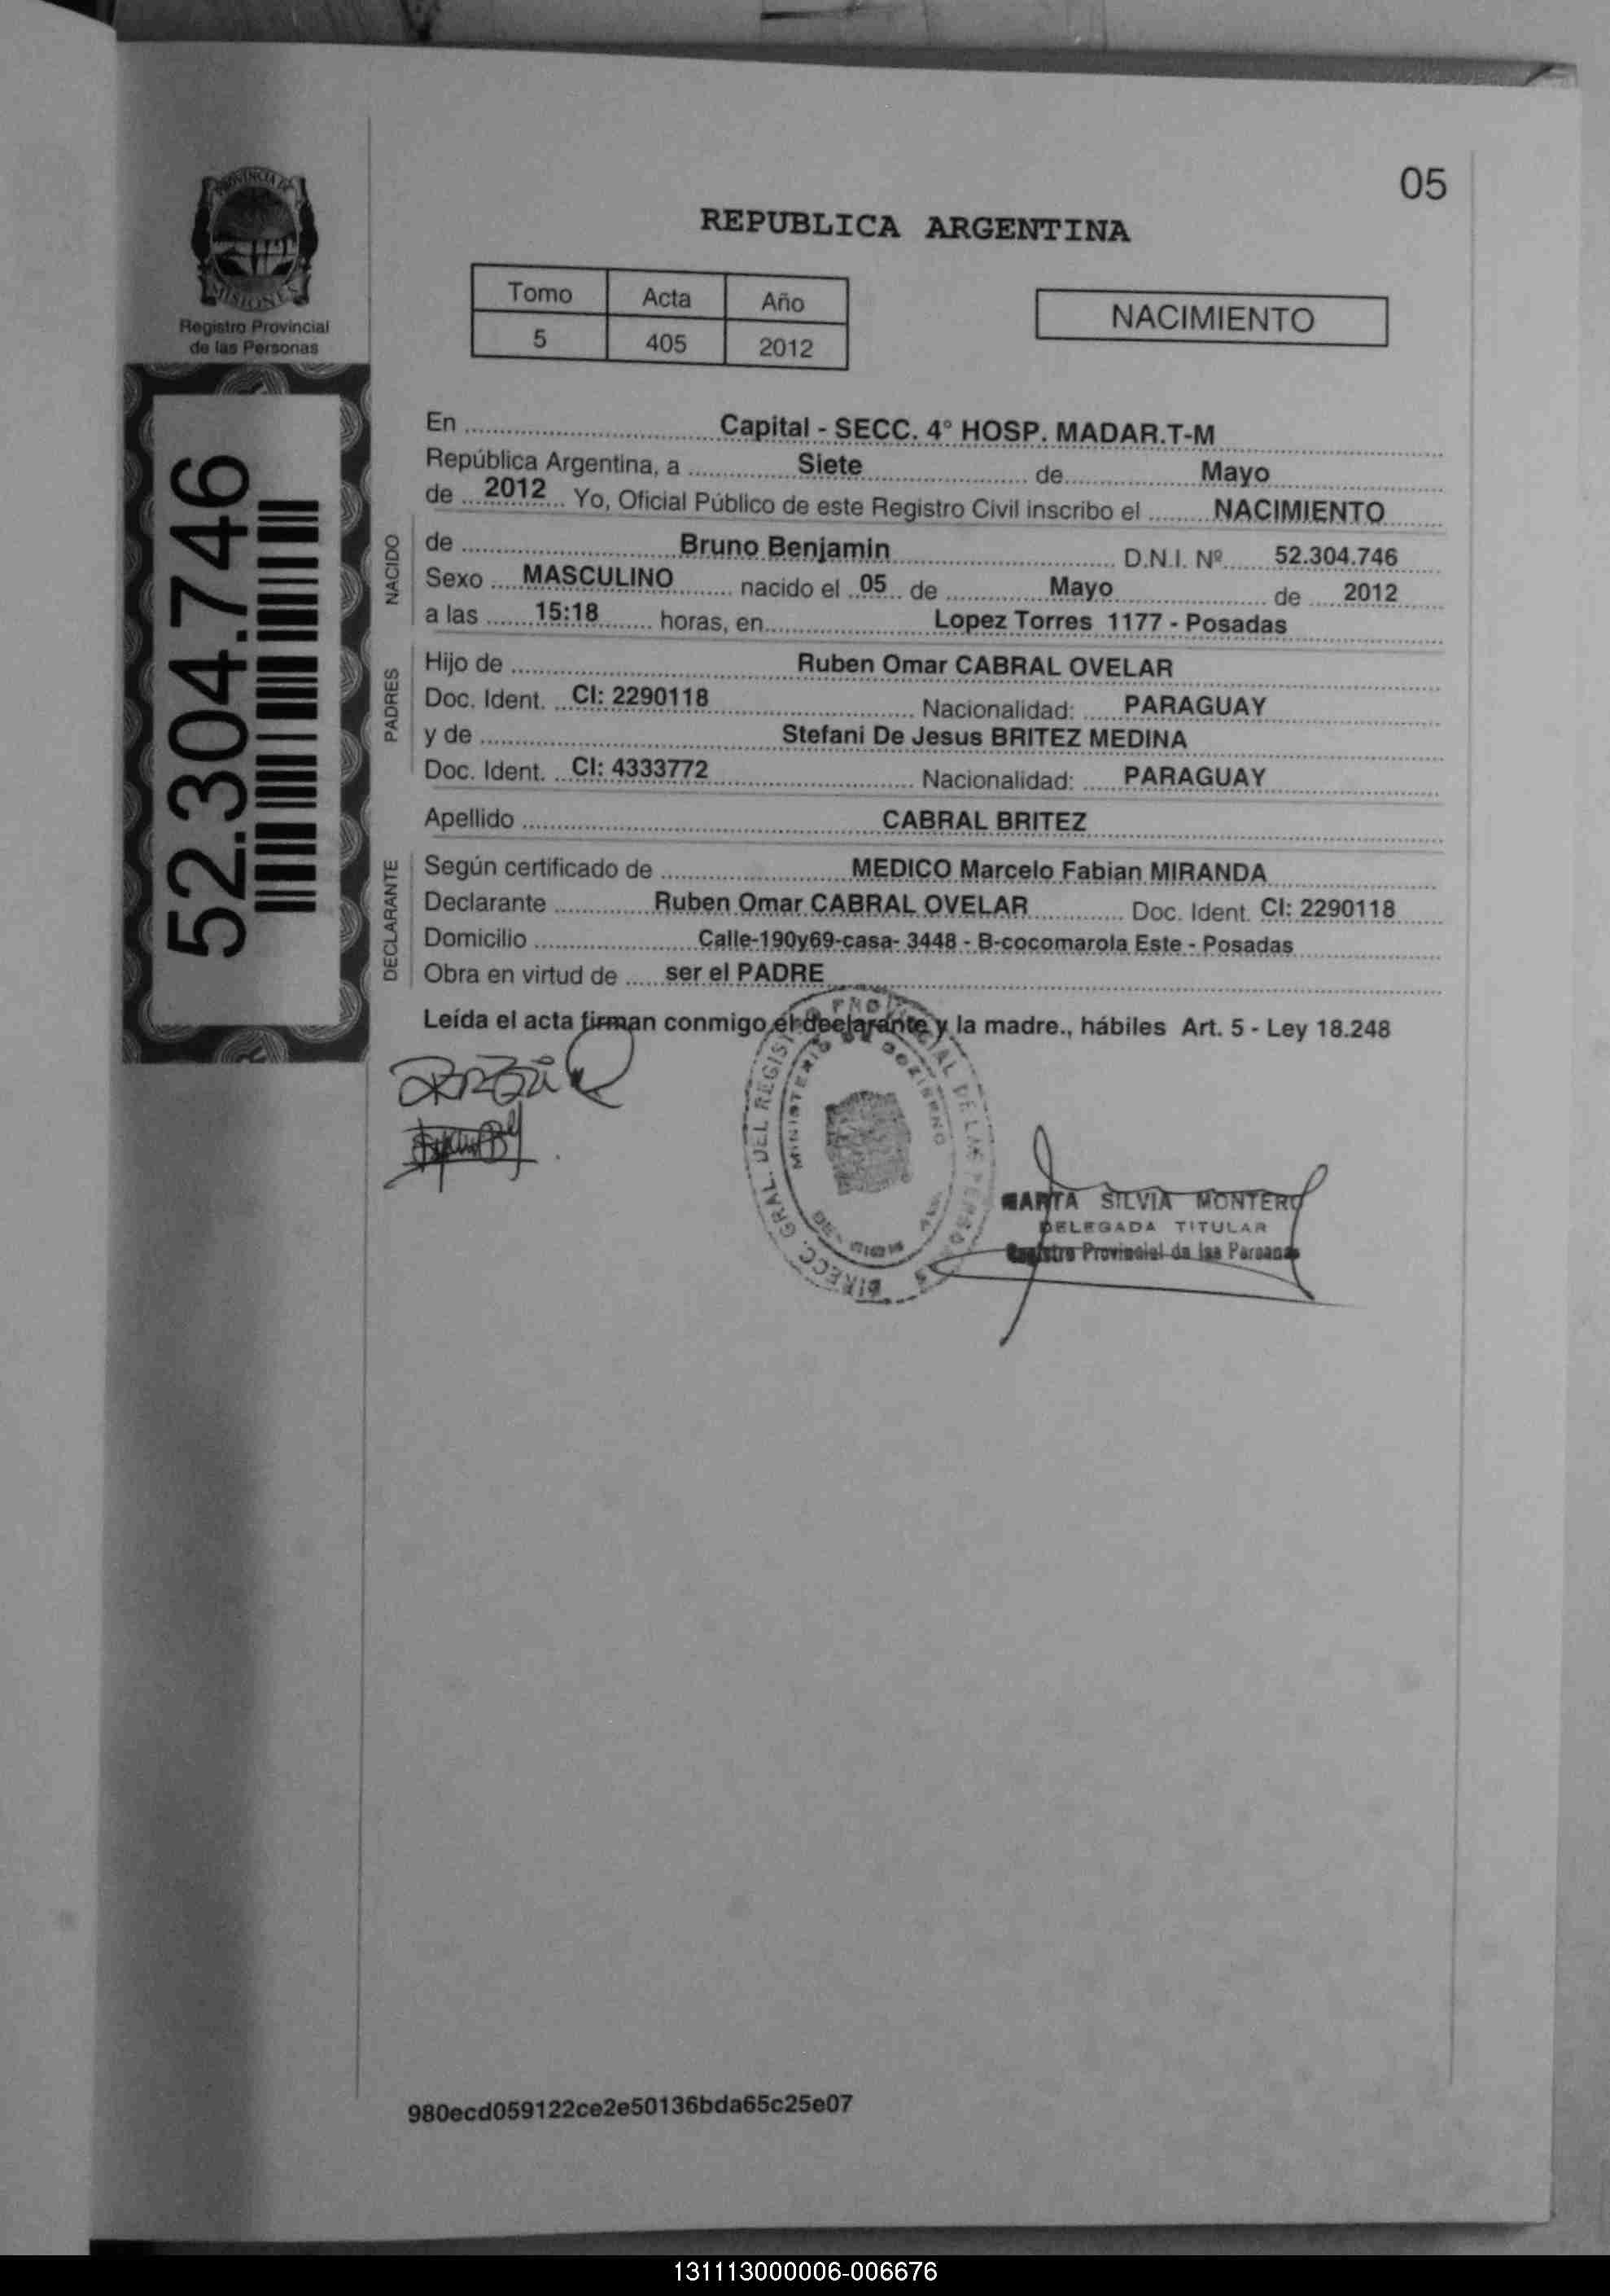 05
PROVINCIA DE
MISIONES
Registro Provincial
de las Personas
REPUBLICA ARGENTINA
Tomo Acta Año
5 405 2012
NACIMIENTO
52.304.746
En Capital - SECC. 4° HOSP. MADAR.T-M
República Argentina, a Siete de Mayo
de 2012 Yo, Oficial Público de este Registro Civil inscribo el NACIMIENTO
NACIDO
de Bruno Benjamin D.N.I. Nº 52.304.746
Sexo MASCULINO nacido el 05 de Mayo de 2012
a las 15:18 horas, en Lopez Torres 1177 - Posadas
PADRES
Hijo de Ruben Omar CABRAL OVELAR
Doc. Ident. CI: 2290118 Nacionalidad: PARAGUAY
y de Stefani De Jesus BRITEZ MEDINA
Doc. Ident. CI: 4333772 Nacionalidad: PARAGUAY
Apellido CABRAL BRITEZ
DECLARANTE
Según certificado de MEDICO Marcelo Fabian MIRANDA
Declarante Ruben Omar CABRAL OVELAR Doc. Ident. CI: 2290118
Domicilio Calle-190y69-casa- 3448 - B-cocomarola Este - Posadas
Obra en virtud de ser el PADRE
Leída el acta firman conmigo el declarante y la madre., hábiles Art. 5 - Ley 18.248
DIRECC. GRAL. DEL REGISTRO PROVINCIAL DE LAS PERSONAS
MINISTERIO DE GOBIERNO
MARTA SILVIA MONTERO
DELEGADA TITULAR
Registro Provincial de las Personas
980ecd059122ce2e50136bda65c25e07
131113000006-006676